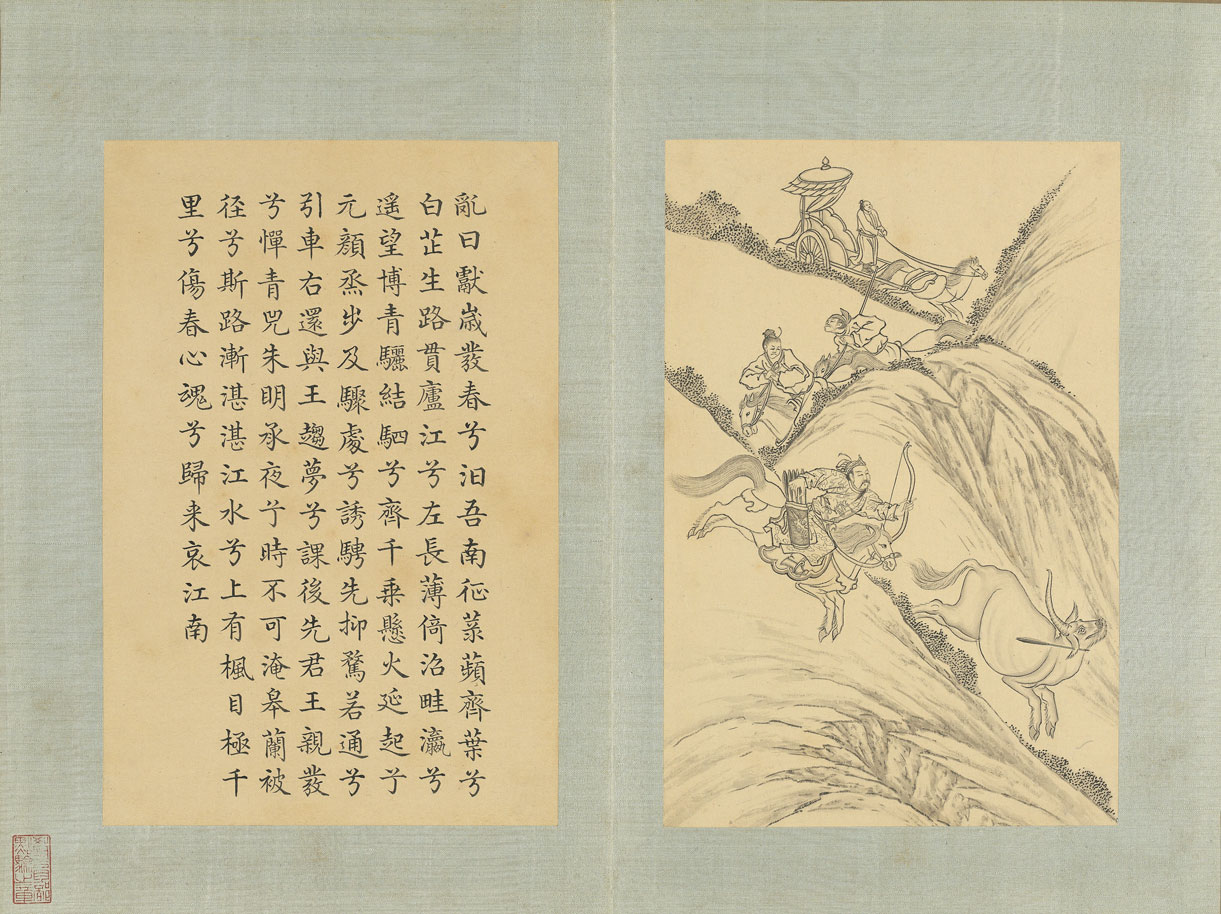 亂曰獻歲發春兮汨吾南征菉蘋齊葉兮
白芷生路貫廬江兮左長薄倚沼畦瀛兮
遥望博青驪結駟兮齊千乘懸火延起兮
元顏烝步及驟處兮誘騁先抑騖若通兮
引車右還與王趨夢兮課後先君王親發
兮憚青兕朱明承夜兮時不可淹皋蘭被
徑兮斯路漸湛湛江水兮上有楓目極千
里兮傷春心魂兮歸来哀江南